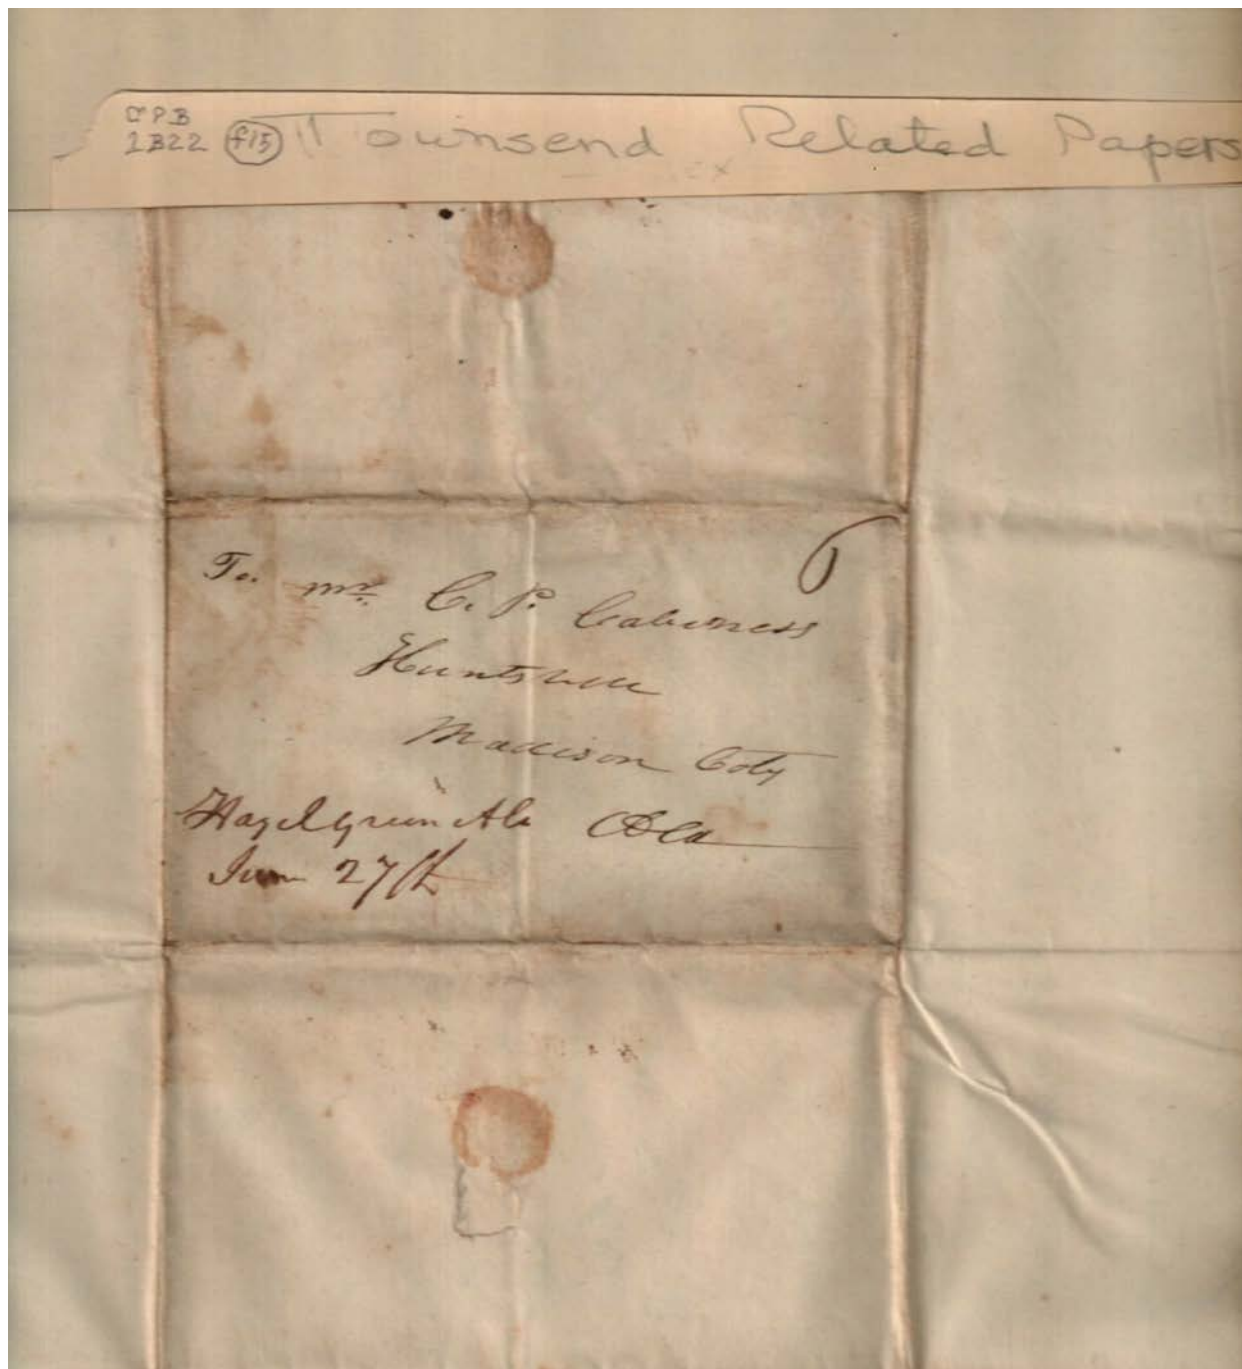 CPB
1B22 f15 Townsend Related Papers
6
To. Mr. C. P. Cabiness
Huntsville
Madison Coty
Hazelgreen Ala Ala
June 27th